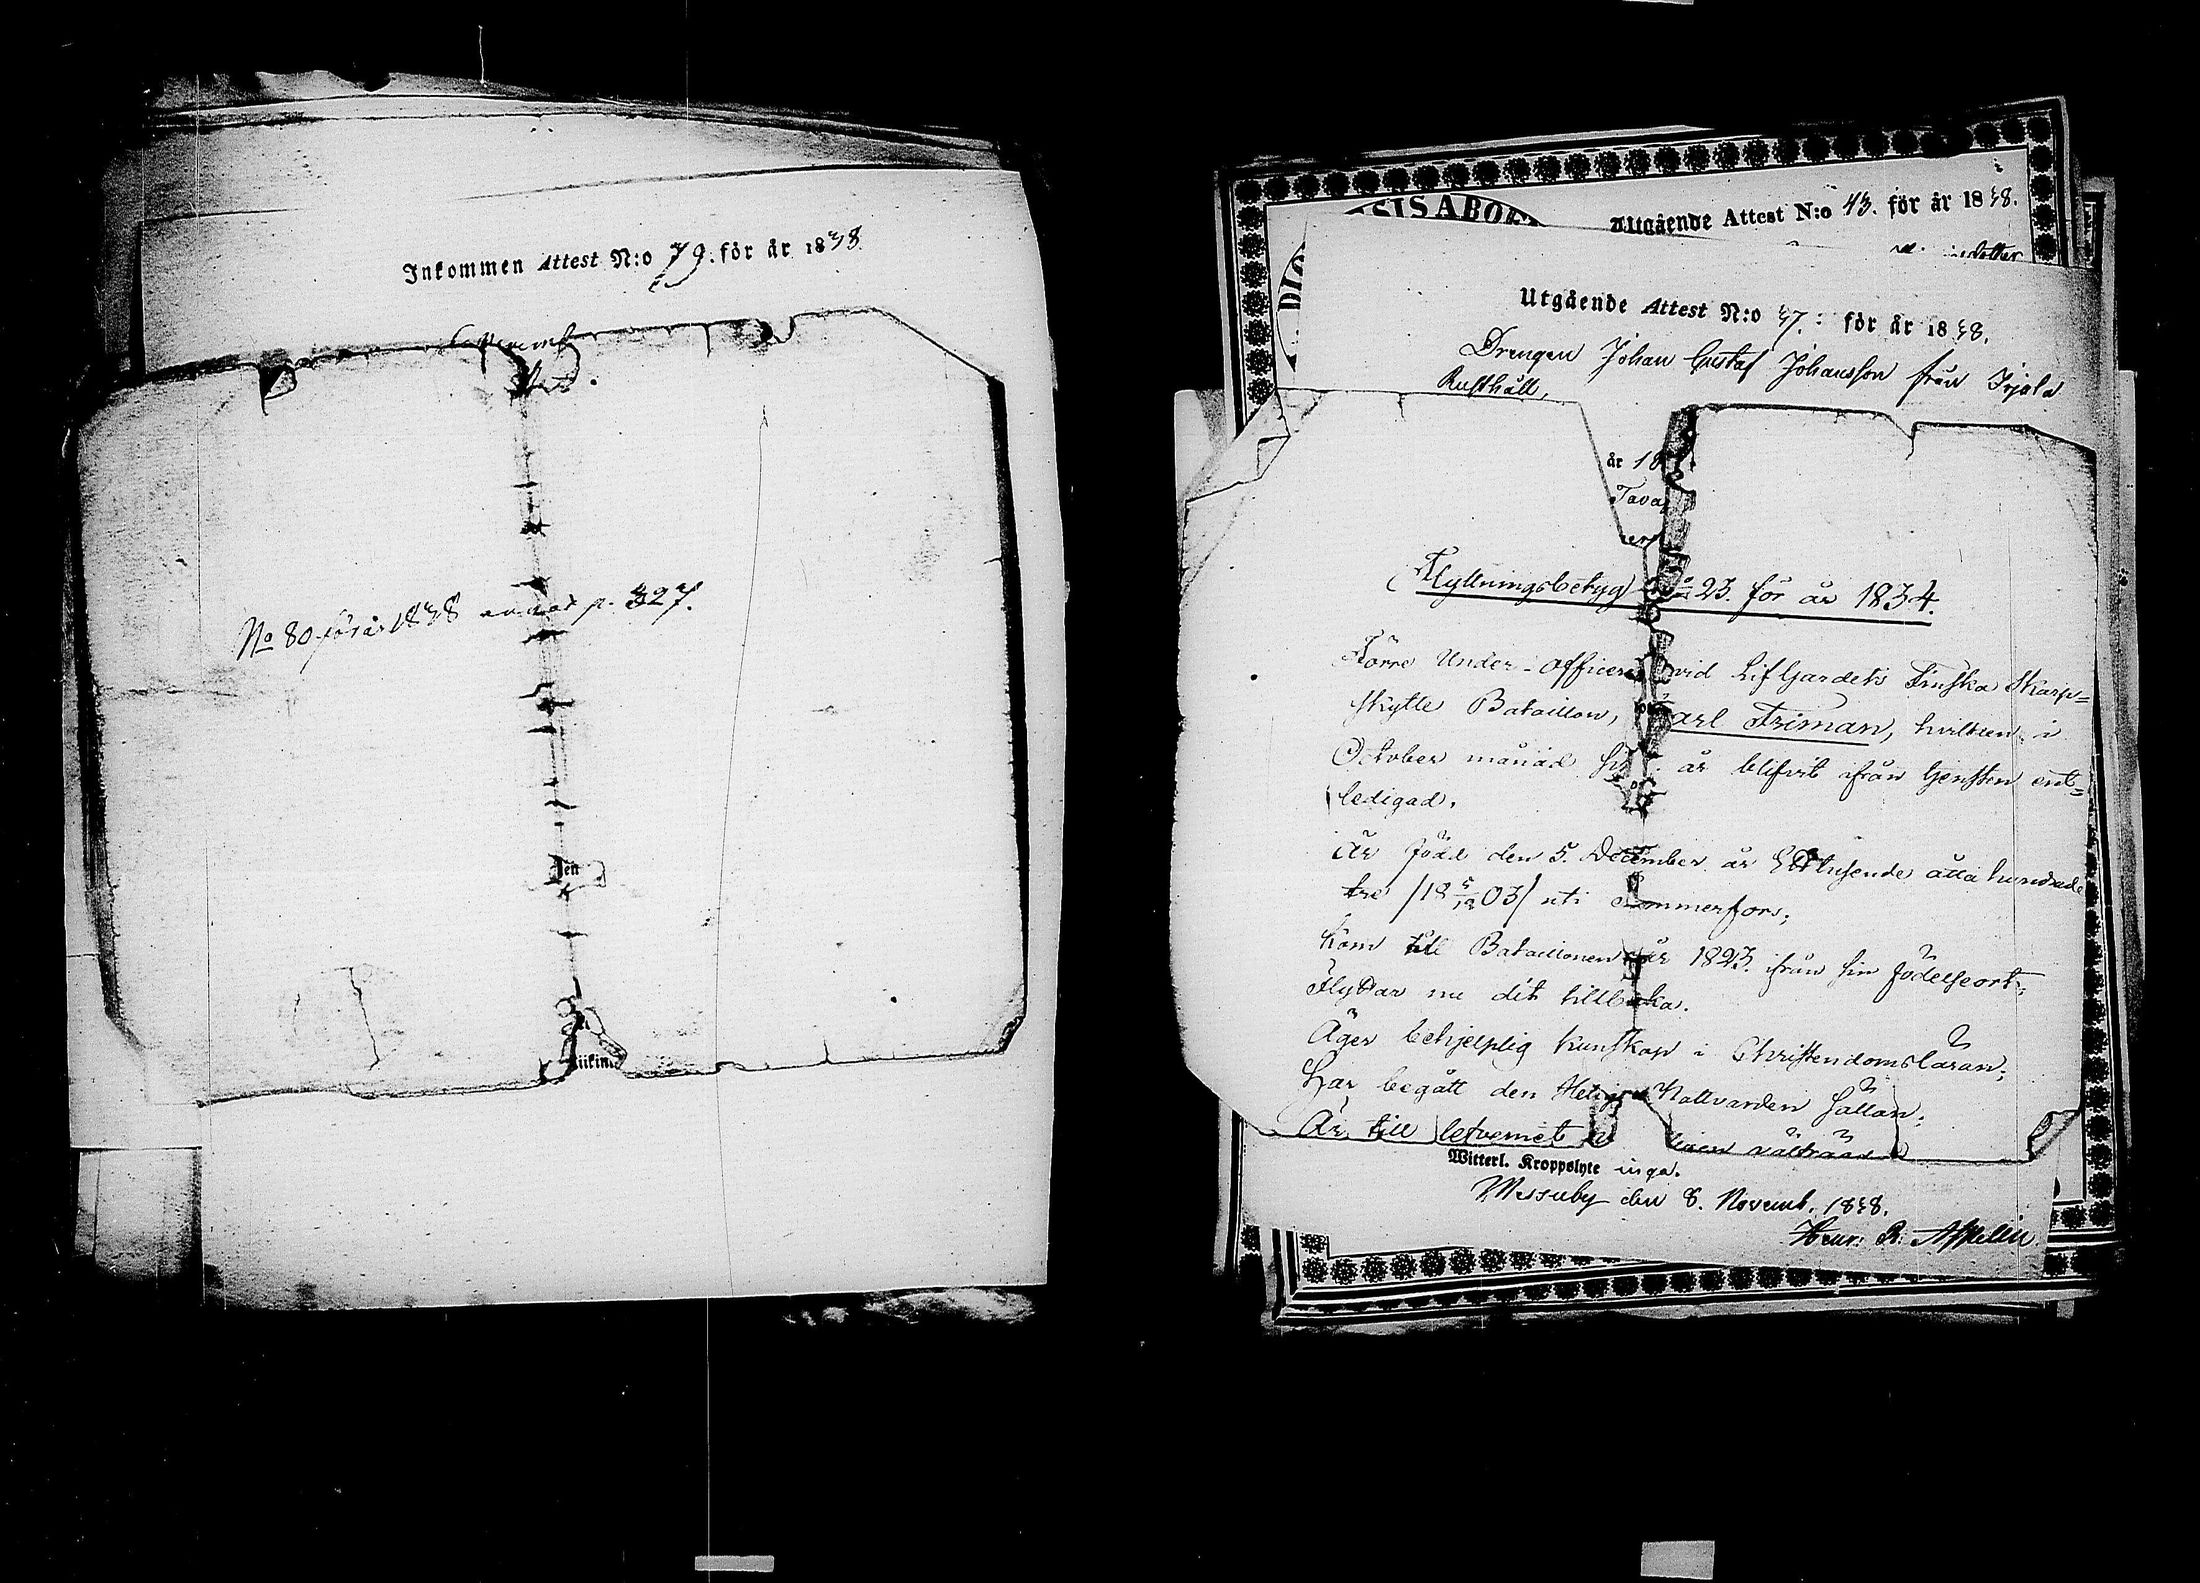 Inkommen Attest N:o 79. för år 1838.
No 80 för år 1838 p. 327.
Jen
iikin
SIS ABOE
DIO
Utgående Attest N:o 43. för år 1838.
Utgående Attest N:o 37. för år 1838.
Drengen Johan Gustaf Johansson från Irjala
Rusthåll,
år 18
Tava
Flyttningsbetyg No 23. för år 1834.
Förre Under-officern vid Lif Gardets Finska Skarp=
skytte Bataillon, Carl Friman, hvilken i
October månad år blifvit ifrån tjensten ent=
ledigad.
är född den 5. December år Ettusende åtta hundrade
tre /18 5/12 03/ uti Tammerfors;
kom till Bataillonen år 1823. ifrån sin födelseort;
Flyttar nu dit tillbaka.
Äger behjelplig kunskap i Christendomsläran;
Har begått den Heliga Nattvarden sällan;
Är till lefvernet
Witterl. Kroppslyte inga.
Messuby den 8. Novemb. 1838.
Henr: R: Aspelin